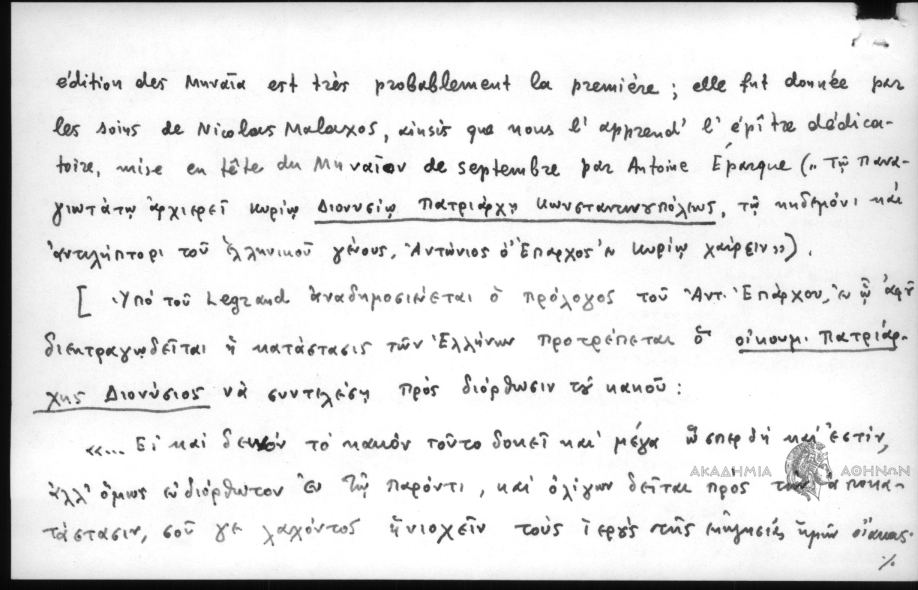 édition des Μηναῖα est très probablement la première ; elle fut donnée par
les soins de Nicolas Malaxos, ainsis que nous l'apprend' l'épître dédica-
toire, mise en tête du Μηναῖον de septembre par Antoine Éparque („Τῷ Πανα-
γιωτάτῳ ἀρχιερεῖ κυρίῳ Διοννσίῳ Πατριάρχῃ Κωνσταντινουπόλεως, τῷ κηδεμόνι καὶ
ἀντιλήπτορι τοῦ ἑλληνικοῦ γένους, Ἀντώνιος ὁ Ἔπαρχος ἐν κυρίῳ χαίρειν»).
[Ὑπὸ τοῦ Legrand ἀναδημοσιεύεται ὁ πρόλογος τοῦ Ἀντ. Ἐπάρχου, ἐν ᾧ ἀφ' οὗ
διεκτραγῳδεῖται ἡ κατάστασις τῶν Ἑλλήνων προτρέπεται ὁ οἰκουμ. Πατριάρ-
χης Διονύσιος νὰ συντελέσῃ πρὸς διόρθωσιν τοῦ κακοῦ:
«... Εἰ καὶ δεινὸν τὸ κακὸν τοῦτο δοκεῖ καὶ μέγα ὥσπερ δὴ καὶ ἐστίν,
ἀλλ' ὅμως εὐδιόρθωτον ἐν τῷ παρόντι, καὶ ὀλίγων δεῖται πρὸς τὴν ἀποκα-
τάστασιν, σοῦ γε λαχόντος ἡνιοχεῖν τοὺς ἱεροὺς τῆς ἐκκλησίας ἡμῶν οἴακας.
ΑΚΑΔΗΜΙΑ ΑΘΗΝΩΝ
./.